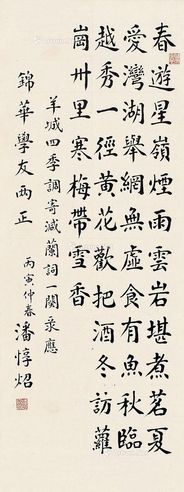 春遊星嶺煙雨雲岩堪煮茗夏
愛灣湖舉網無虛食有魚秋臨
越秀一徑黃花歡把酒冬訪蘿
崗卅里寒梅帶雪香
羊城四季調寄減蘭詞一闋錄應
錦華學友兩正
丙寅仲春潘惇炤